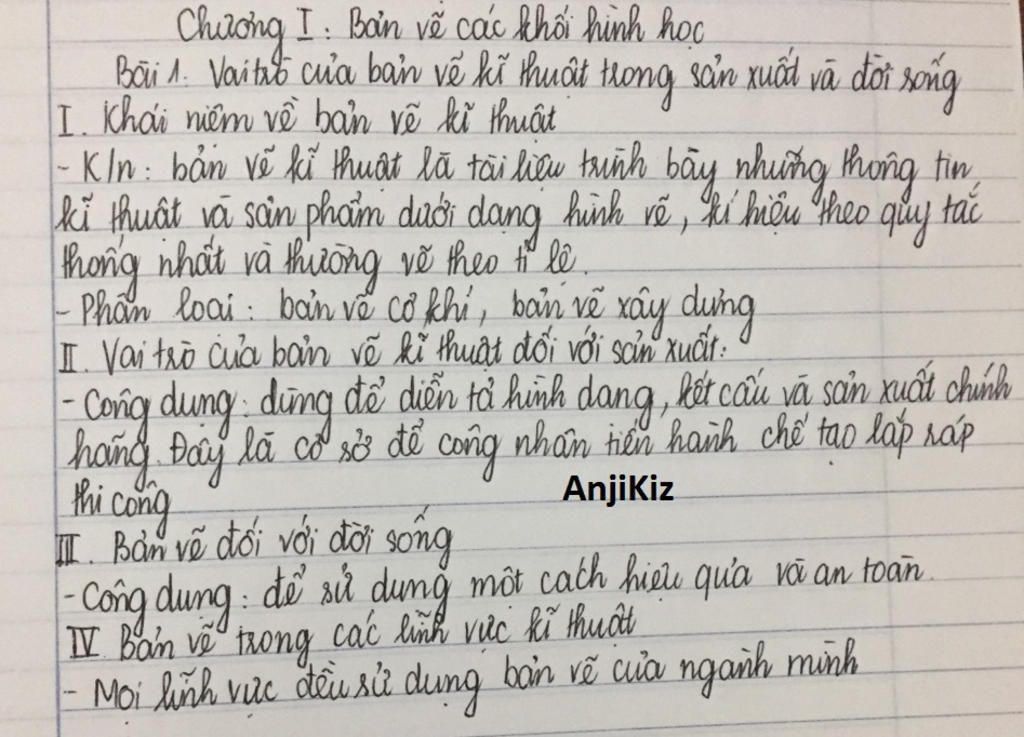 Chương I: Bản vẽ các khối hình học
Bài 1: Vai trò của bản vẽ kĩ thuật trong sản xuất và đời sống
I. Khái niệm về bản vẽ kĩ thuật
- K/n: bản vẽ kĩ thuật là tài liệu trình bày những thông tin
kĩ thuật và sản phẩm dưới dạng hình vẽ, kí hiệu theo quy tắc
thống nhất và thường vẽ theo tỉ lệ.
- Phân loại: bản vẽ cơ khí, bản vẽ xây dựng
II. Vai trò của bản vẽ kĩ thuật đối với sản xuất:
- Công dụng: dùng để diễn tả hình dạng, kết cấu và sản xuất chính
hãng. Đây là cơ sở để công nhân tiến hành chế tạo lắp ráp
thi công
AnjiKiz
III. Bản vẽ đối với đời sống
- Công dụng: để sử dụng một cách hiệu quả và an toàn.
IV Bản vẽ trong các lĩnh vực kĩ thuật
- Mọi lĩnh vực đều sử dụng bản vẽ của ngành mình